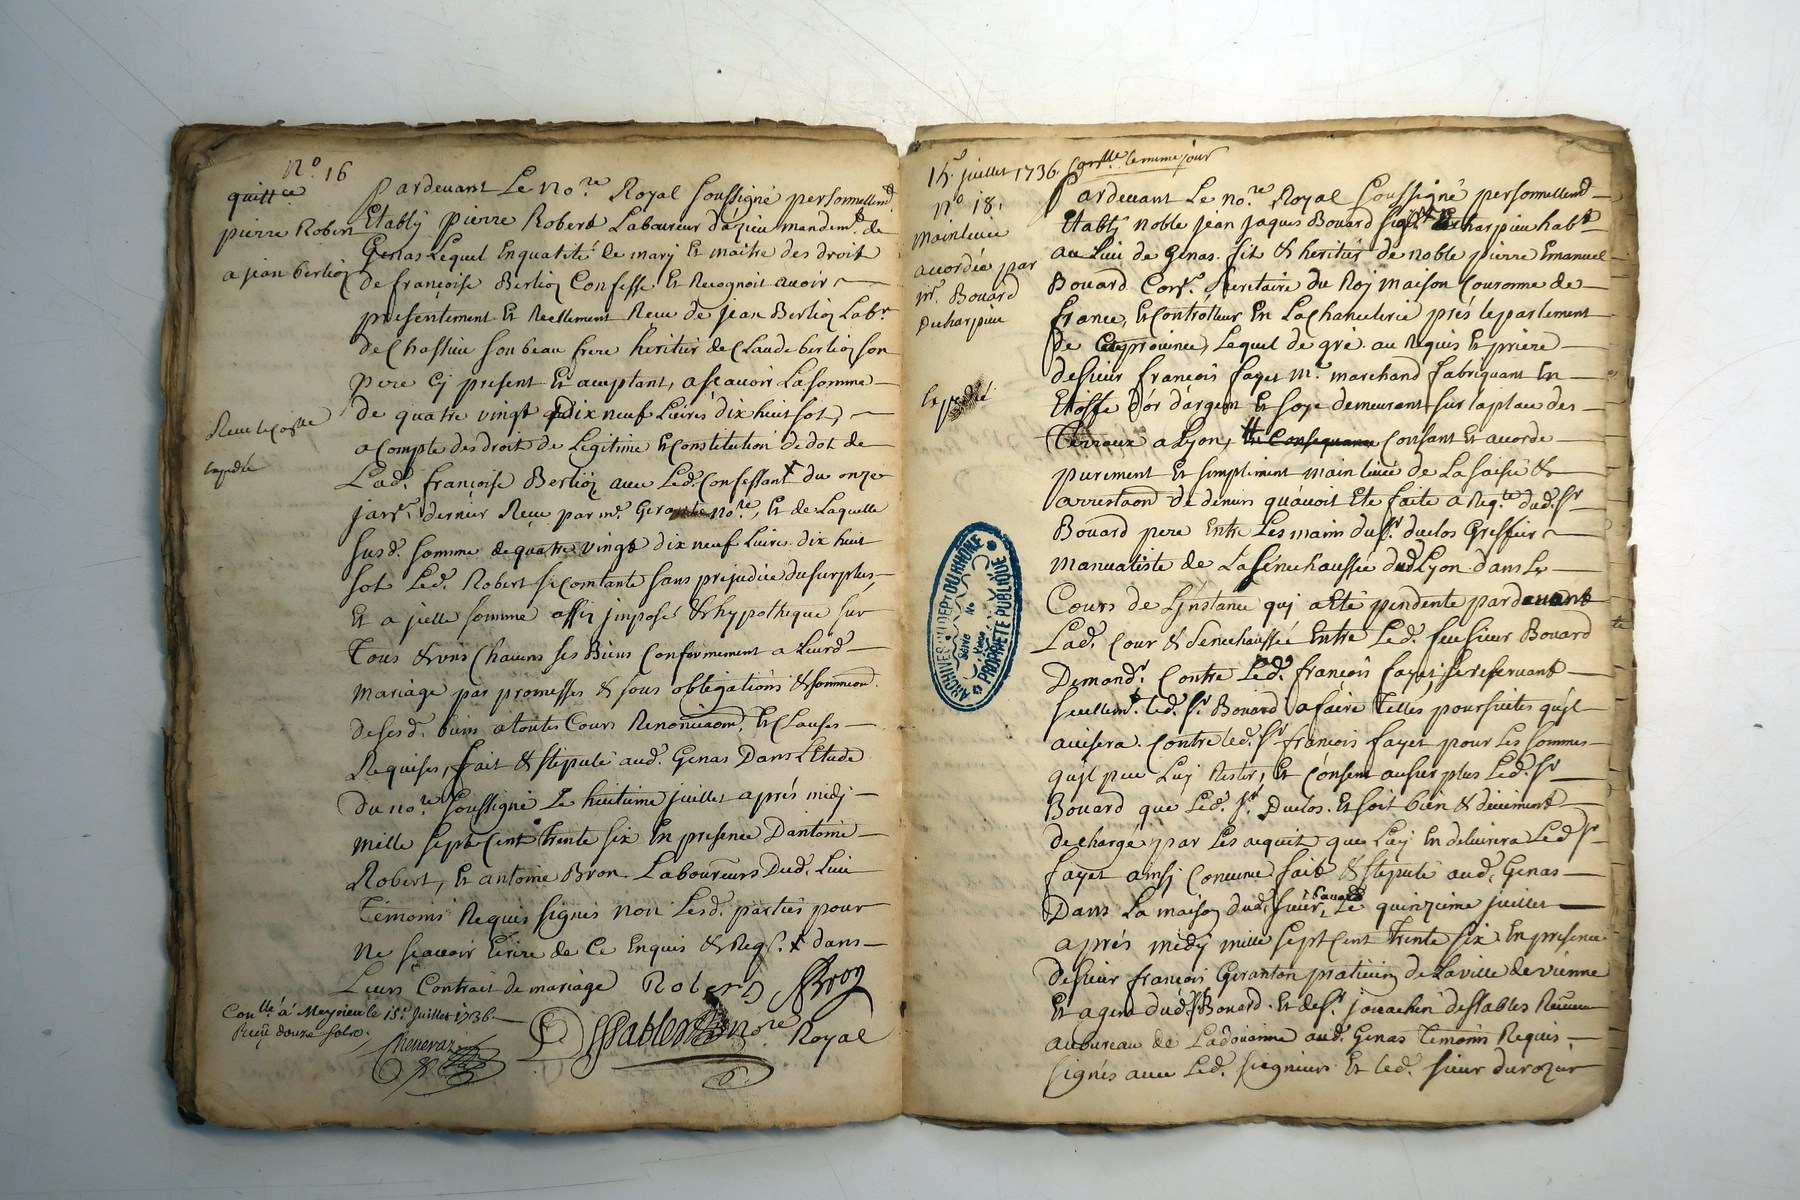 N.º 16
quitt.ce
pierre Robert
a jean berlioz
Pardevant Le no.re Royal soussigné personnellem.t
Etably pierre Robert Laboureur d'azieu mandem.t de
Genas Lequel En qualité de mary Et maitre des droit
de françoise Berlioz Confesse Et Recognoit avoir
presentement Et Reellement Receu de jean Berlioz Lab.r
de Chassieu son beau frere heritier de Claude berlioz son
pere cy present Et acceptant, ascavoir La somme
de quatre vingt dix neuf Livres dix huit sol,
a Compte des droit de Legitime Et Constitution de dot de
Lad. françoise Berlioz avec Led. Confessant X du onze
janv.r dernier Receu par m.e no.re, Et de Laquelle
susd. somme de quatre vingt dix neuf Livre dix huit
sol Led. Robert se Contante sans prejudice du surplus
Et a jcelle somme assis jmposé & hypotheque sur
Tous & uns Chacuns ses Biens Conformement a Leurd.
mariage par promesses & sous obligations &
desesd. biens a toutes Cours Et Clauses
Requises, fait & stipulé aud. Genas Dans L'Etude
du no.re soussigné Le huitieme juillet aprés midj
mille sept Cent trente six En presence D'antoine
Robert, Et antoine Bron Laboureurs Dud. Lieu
Témoins Requis signés non Lesd. parties pour
ne scavoir Ecrire de Ce Enquis & Reqs. X dans
Leurs Contrait de mariage Robert Bron
Con.llé à Meyzieu le 15.e Juillet 1736
Reçu douze sols.
Chenevaz
no.re Royal
15.e juillet 1736. le meme jour
N.º 18.
Mainlevée
accordée par
m.r Bouard
Ducharpieu
Expedié
Pardevant Le no.re Royal soussigné personnellem.t
Etably noble jean jaques Bouard Ducharpieu hab.t
au Lieu de Genas fils & heritier de noble pierre Emanuel
Bouard Con.r secretaire du Roy maison Couronne de
france, Et Controlleur En La Chancelerie prés le parlement
de province, Lequel de gré au Requis Et priere
de sieur françois fayet m.e marchand fabriquant En
Etoffe d'or d'argent Et soye demeurant sur la place des
Terreaux a Lyon, Consant Et accorde
purement Et simplement main levée de La saisie &
de deniers qu'avoit Eté faite a Req.te dud. S.r
Bouard pere Entre Les mains du S.r duclos Greffier
manualiste de La Sénéchaussée de Lyon dans Le
Cours de L'jnstance quj a Eté pendente pardevant
Lad. Cour & sénéchaussée Entre Led. feu sieur Bouard
Demand.r Contre Led. françois fayet se reservant
seullem.t led. S.r Bouard a faire Telles poursuites qu'jl
avisera Contre led. S.r francois fayet pour Les sommes
qu'jl peu Luj Rester, Et Consent au surplus Led. S.r
Bouard que Led. S.r Duclos Et soit bien & deüement
dechargé par Les acquit que Luj En delivrera Led S.r
fayet ainsj Convenu fait & stipulé aud. Genas
Dans La maison dud. sieur Bouard, Le quinzieme juillet
aprés midj mille sept Cent trente six En presence
de sieur françois Geranton praticien de La ville de vienne
Et agent dud. S.r Bouard Et de S.r jouachin des sables Receveur
au bureau de La doüanne aud. Genas Temoins Requis
signés avec Led. Et led. sieur
ARCHIVES DU DEP.T DU RHONE
PROPRIETE PUBLIQUE